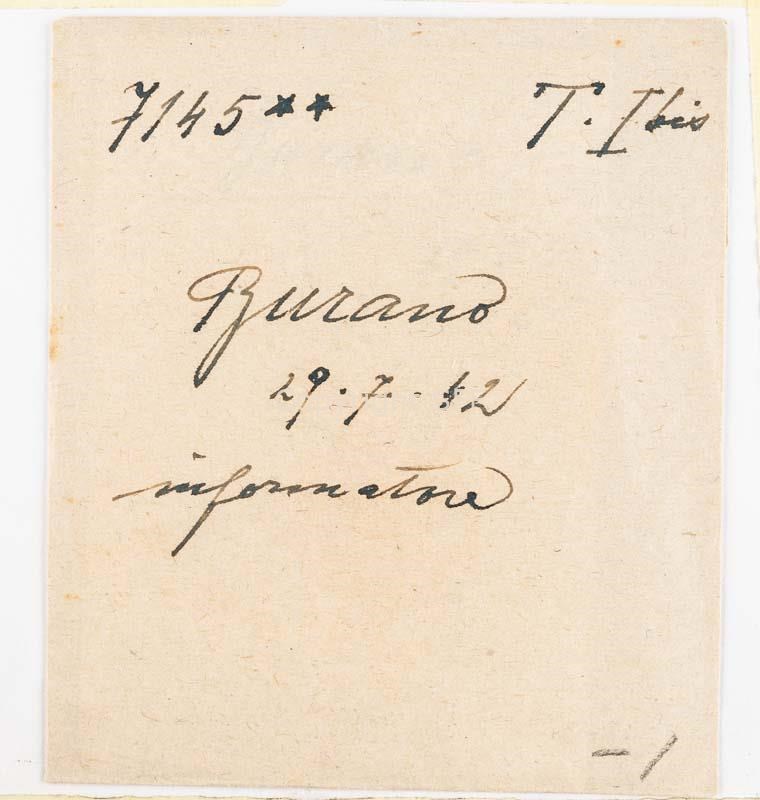 7145** T. I bis
Burano
29.7.42
informatore
- 1